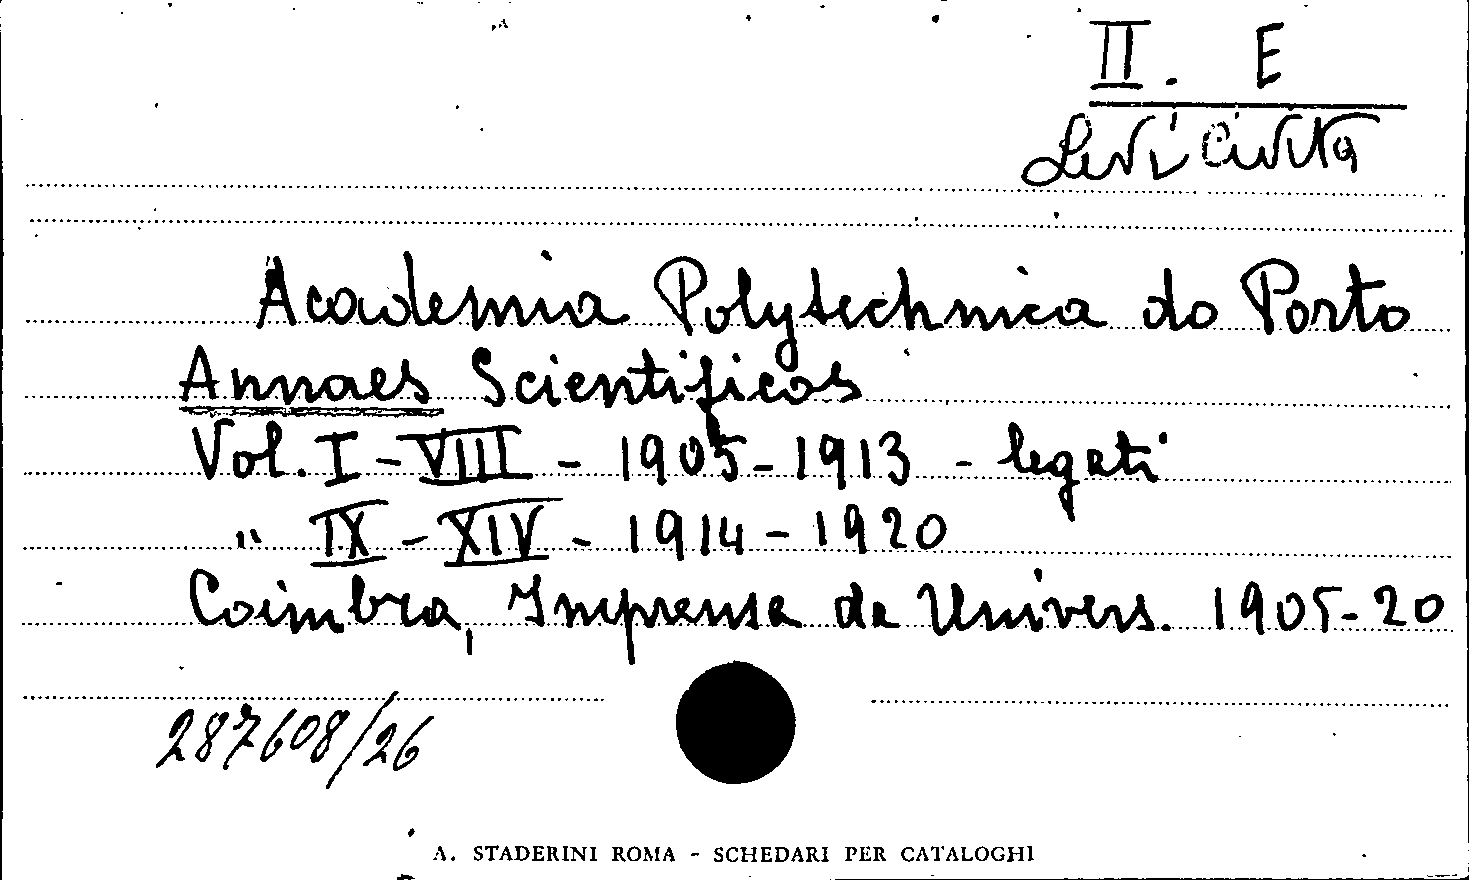 II. E
Levi Civita
Academia Polytechnica do Porto
Annaes Scientificos
Vol. I - VIII - 1905 - 1913 - legati
" IX - XIV - 1914 - 1920
Coimbra, Imprensa da Univers. 1905-20
287608/26
A. STADERINI ROMA - SCHEDARI PER CATALOGHI